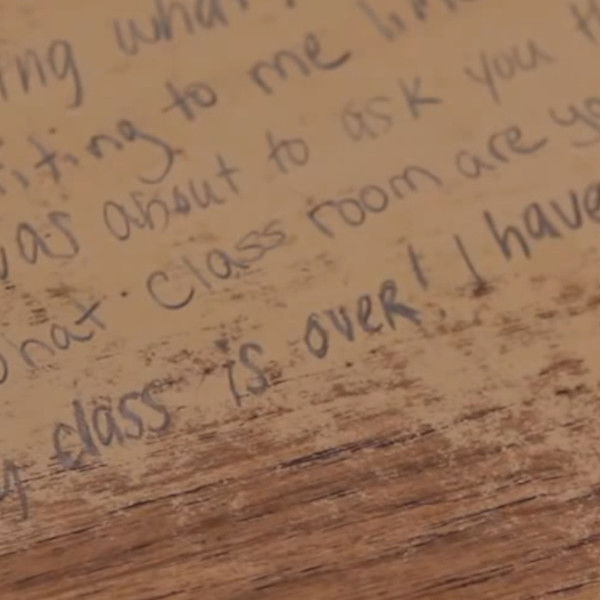 ing what
writing to me
was about to ask you
what classroom are yo
y class is over! I have